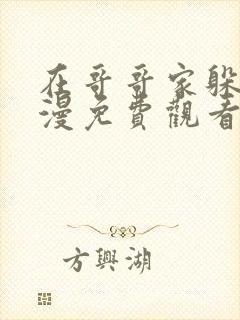 在哥哥家躲
漫免費觀看
方興湖